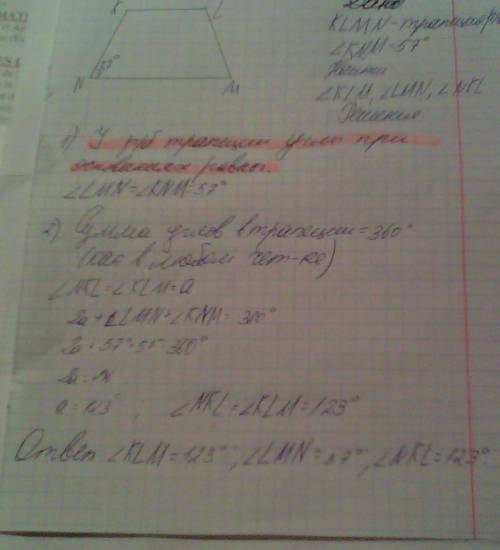 Дано
K L
KLMN-трапеция
57°
∠KNM=57°
N M
Найти
∠KLM, ∠LMN, ∠NKL
Решение
1) У р/б трапеции углы при
основаниях равны.
∠LMN=∠KNM=57°
2) Сумма углов в трапеции=360°
(как в любом чет-ке)
∠NKL=∠KLM=a
2a+∠LMN+∠KNM=360°
2a+57°+57=360°
a=123°, ∠NKL=∠KLM=123°
Ответ ∠KLM=123°, ∠LMN=57°, ∠NKL=123°